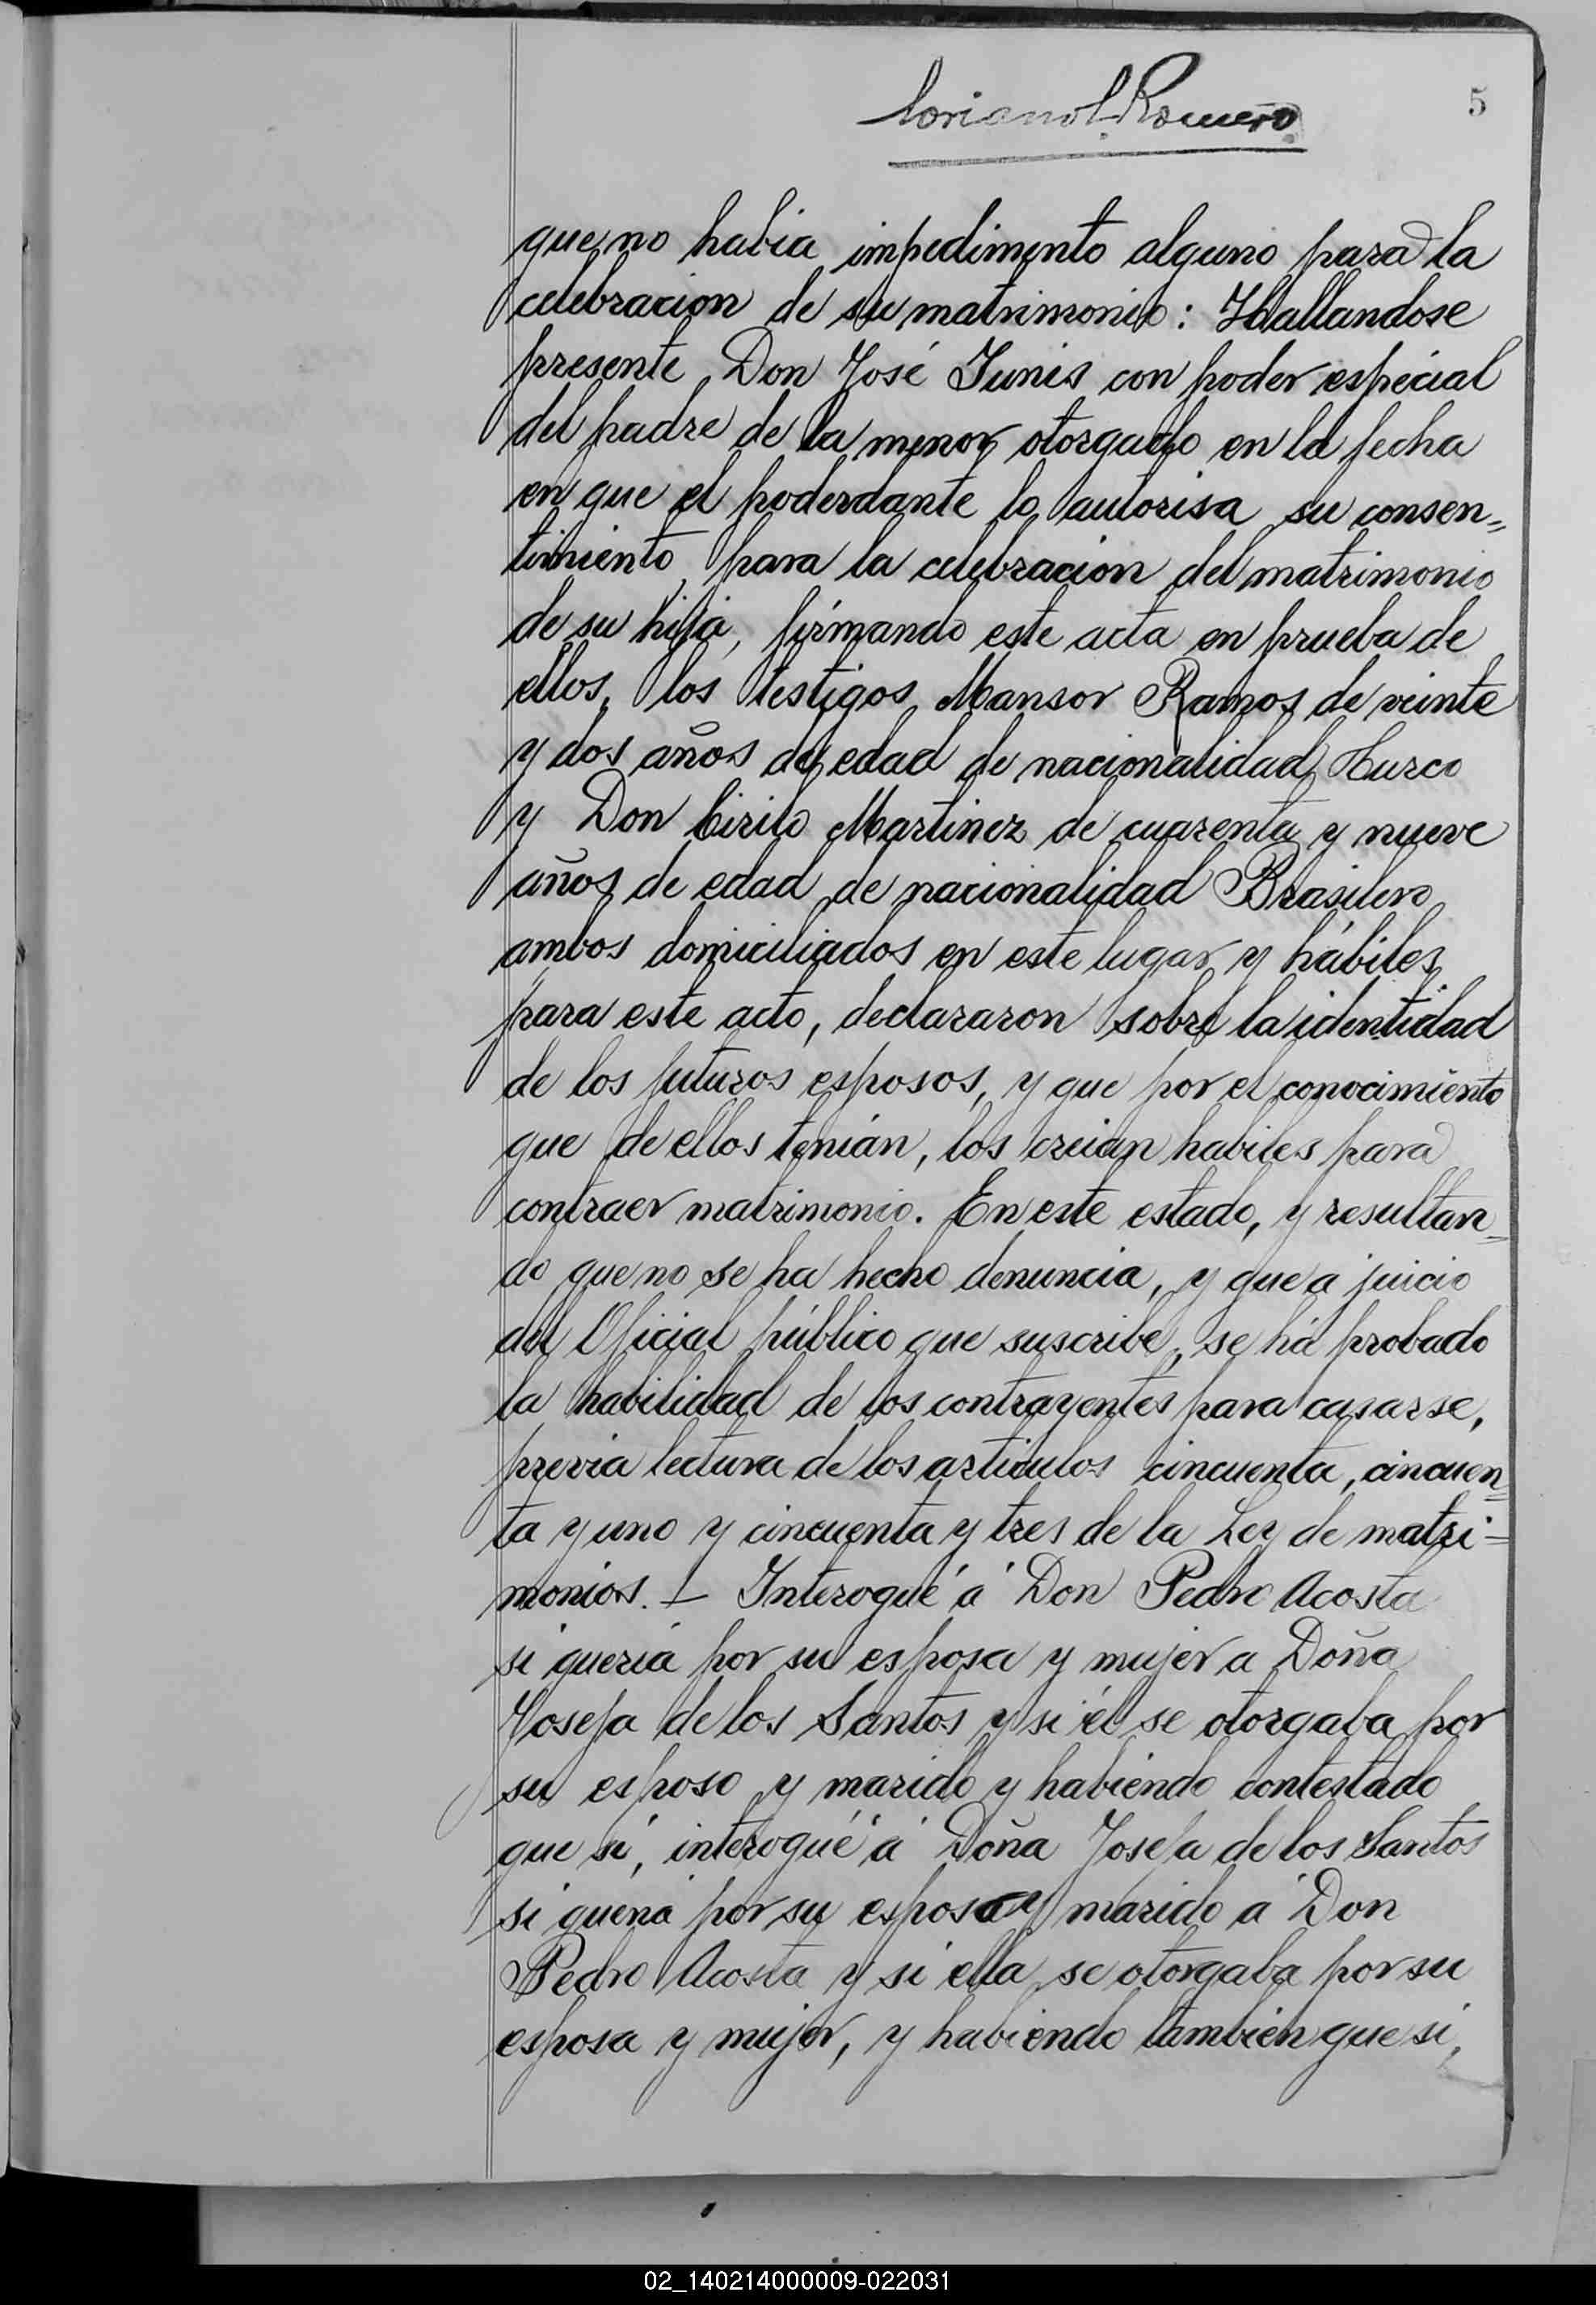 5
Romero
que no habia impedimento alguno para la
celebracion de su matrimonio: Hallandose
presente Don José Junis con poder especial
del padre de la menor otorgado en la fecha
en que el poderdante lo autorisa su consen=
timiento, para la celebracion del matrimonio
de su hija, firmando este acta en prueba de
ellos, los testigos Mansor Ramos de veinte
y dos años de edad de nacionalidad Turco
y Don Cirilo Martinez de cuarenta y nueve
años de edad de nacionalidad Brasilero
ambos domiciliados en este lugar y hábiles
para este acto, declararon sobre la identidad
de los futuros esposos, y que por el conocimiento
que de ellos tenián, los creian habiles para
contraer matrimonio. En este estado, y resultan=
do que no se ha hecho denuncia, y que a juicio
del Oficial público que suscribe, se há probado
la habilidad de los contrayentes para casarse,
previa lectura de los articulos cincuenta, cincuen=
ta y uno y cincuenta y tres de la Ley de matri=
monios. — Interogué á Don Pedro Acosta
si queria por su esposa y mujer a Doña
Josefa de los Santos y si él se otorgaba por
su esposo y marido y habiendo contestado
que sí, interogué á Doña Josefa de los Santos
si queria por su esposo y marido á Don
Pedro Acosta y si ella se otorgaba por su
esposa y mujer, y habiendo tambien que si,
02_140214000009-022031